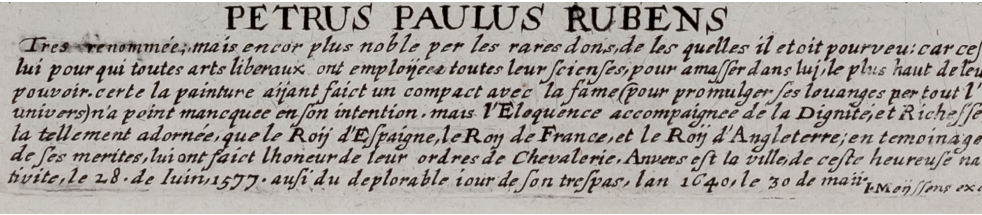 PETRUS PAULUS RUBENS
Tres renommée, mais encor plus noble per les rares dons, de les quelles il etoit pourveu: car ceſ
lui pour qui toutes arts liberaux ont emploijeez toutes leur ſcienſes, pour amaſſer dans lui, le plus haut de leu
pouvoir. certe la painture aijant faict un compact avec la fame (pour promulger ſes louanges per tout l'
univers) n'a point mancquee en ſon intention, mais l'Eloquence accompaignée de la Dignité, et Richeſſe
la tellement adornée, que le Roij d'Eſpaigne, le Roy de France, et le Roij d'Angleterre; en temoinage
de ſes merites, lui ont faict lhoneur de leur ordres de Chevalerie. Anvers eſt la ville, de ceſte heureuſe na
tivite, le 28. de Iuin, 1577. auſi du deplorable iour de ſon treſpas, lan 1640, le 30 de maii. I. Meijſſens exc